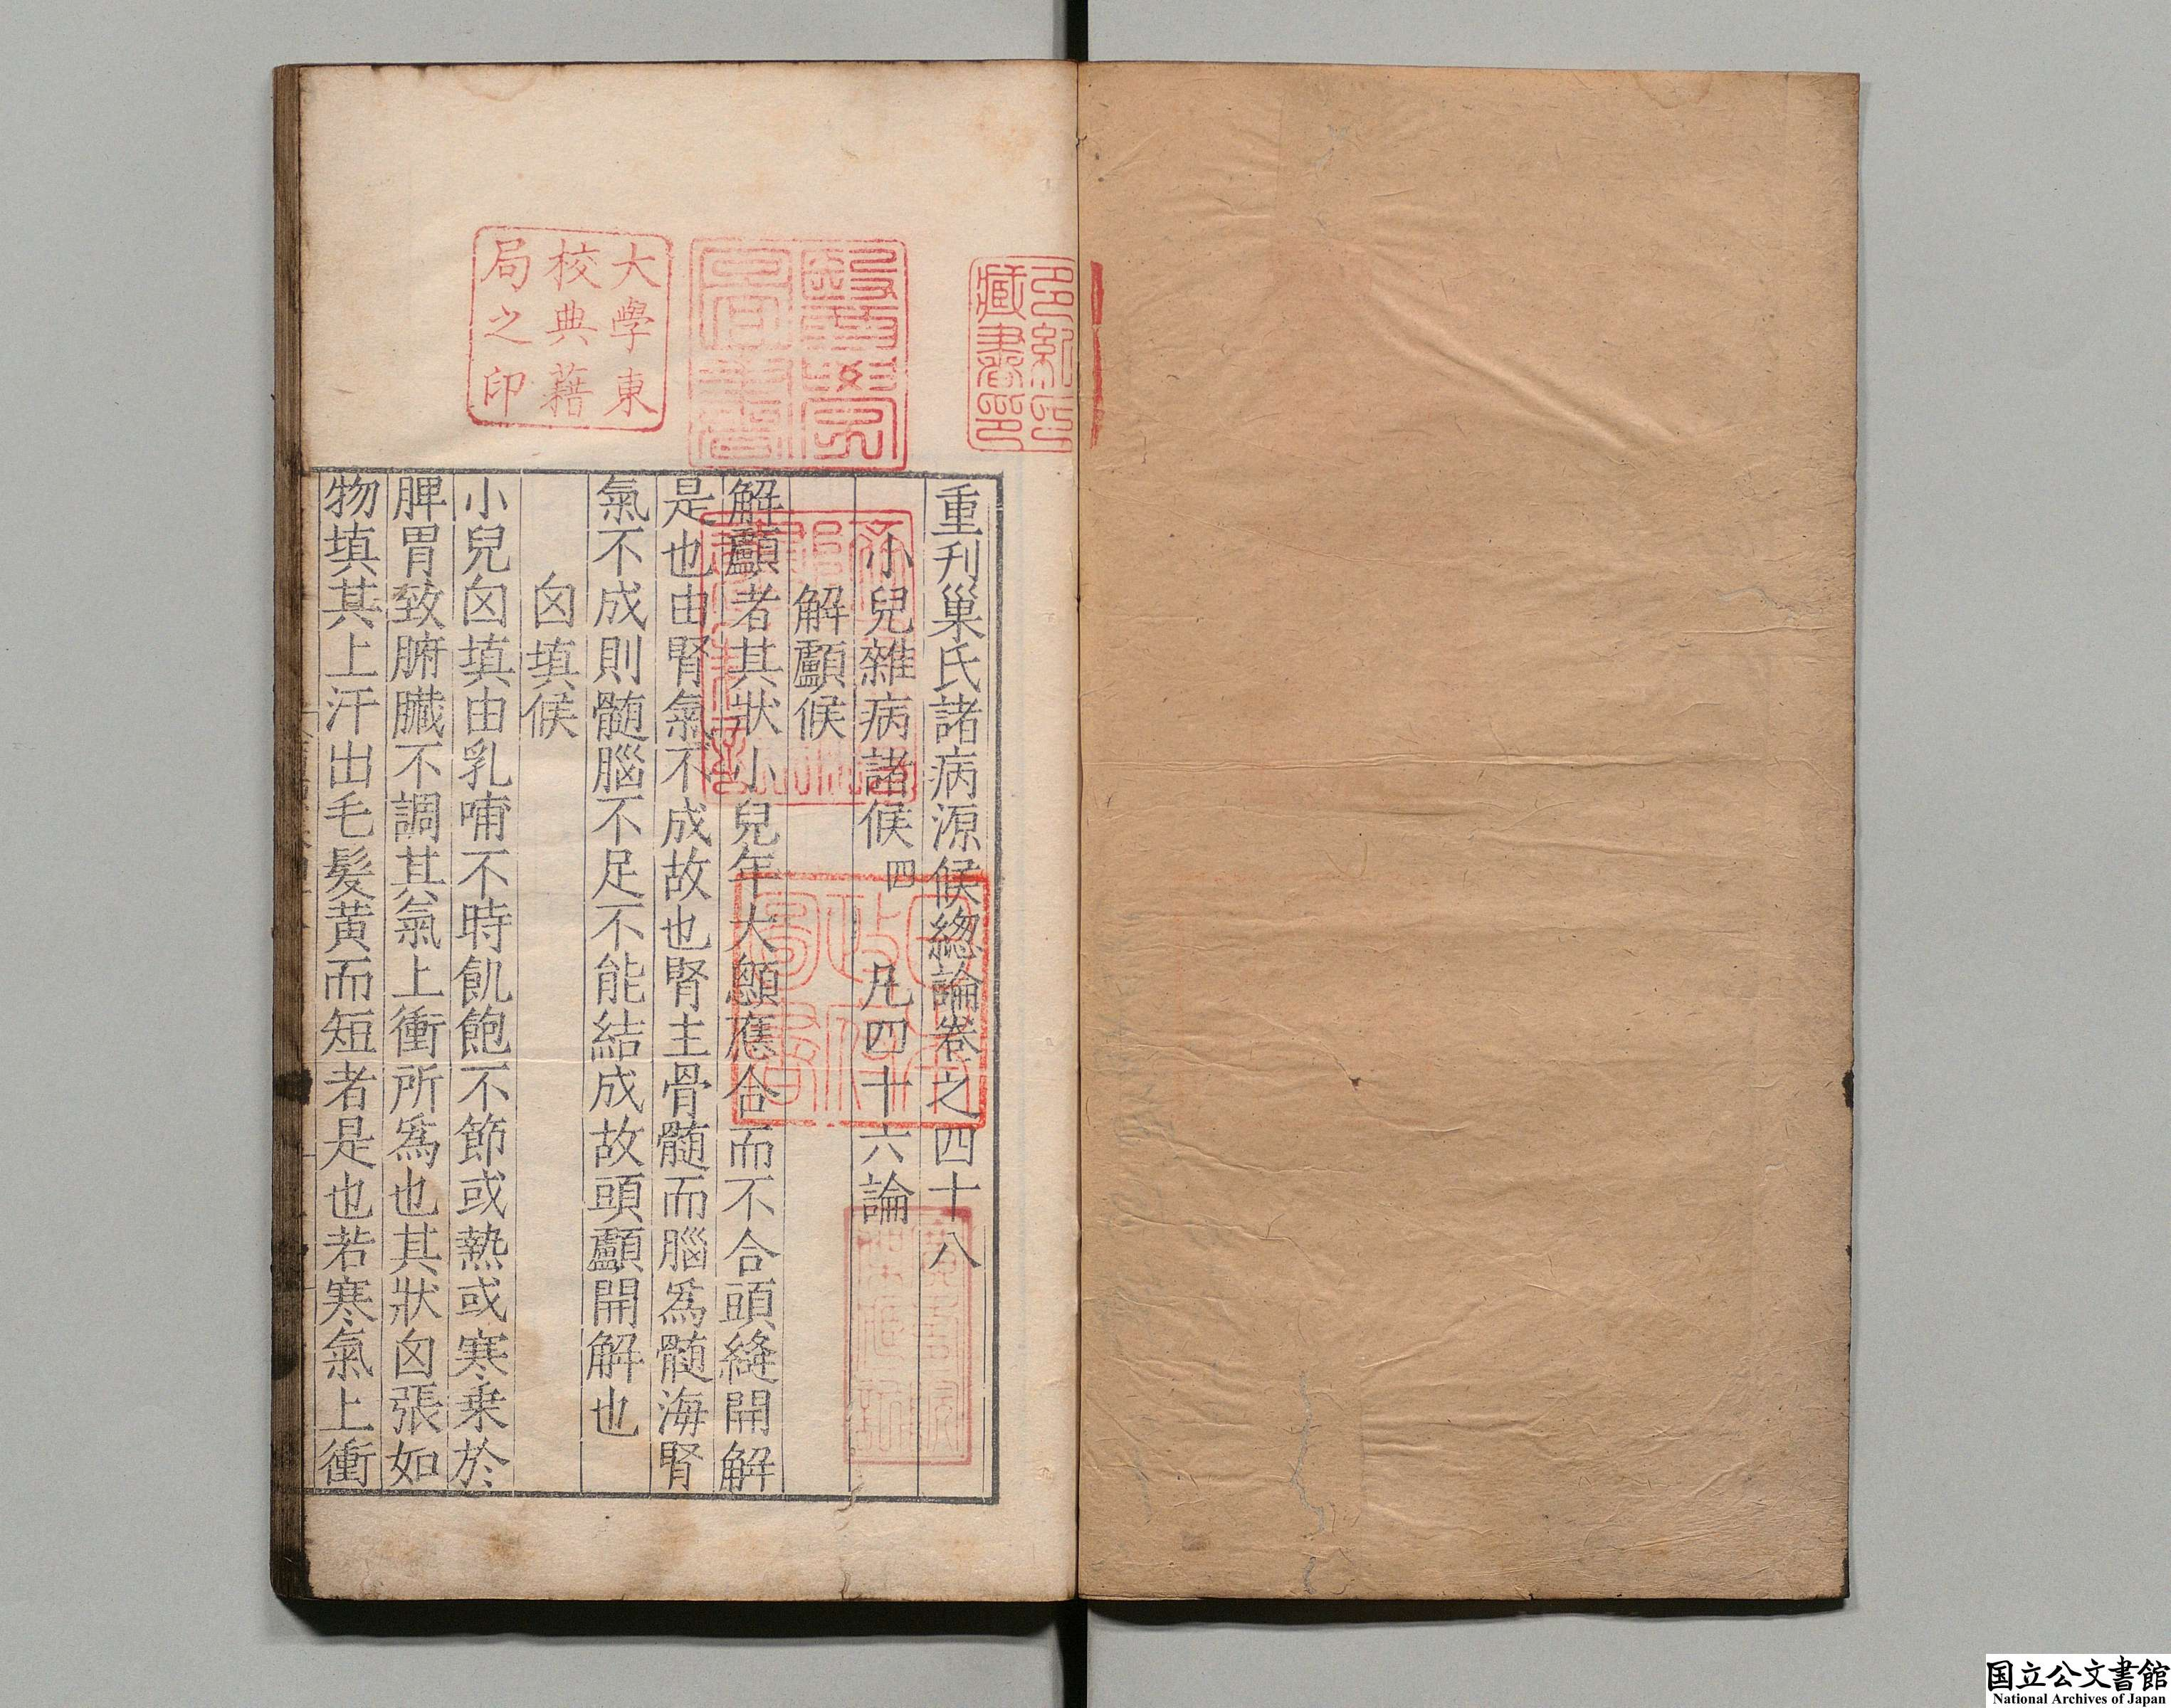 重刋巢氏諸病源候緫論卷之四十八
小兒雜病諸候 四 凡四十六論
解顱候
解顱者其狀小兒年大顖應合而不合頭縫開解
是也由腎氣不成故也腎主骨髓而腦爲髓海腎
氣不成則髓腦不足不能結成故頭顱開解也
囟填候
小兒囟填由乳哺不時飢飽不節或熱或寒乗於
脾胃致腑臟不調其氣上衝所爲也其狀囟張如
物填其上汗出毛髮黃而短者是也若寒氣上衝
多紀氏
藏書印
醫學
大學東
校典藉
局之印
日本
政府
圖書
国立公文書館
National Archives of Japan